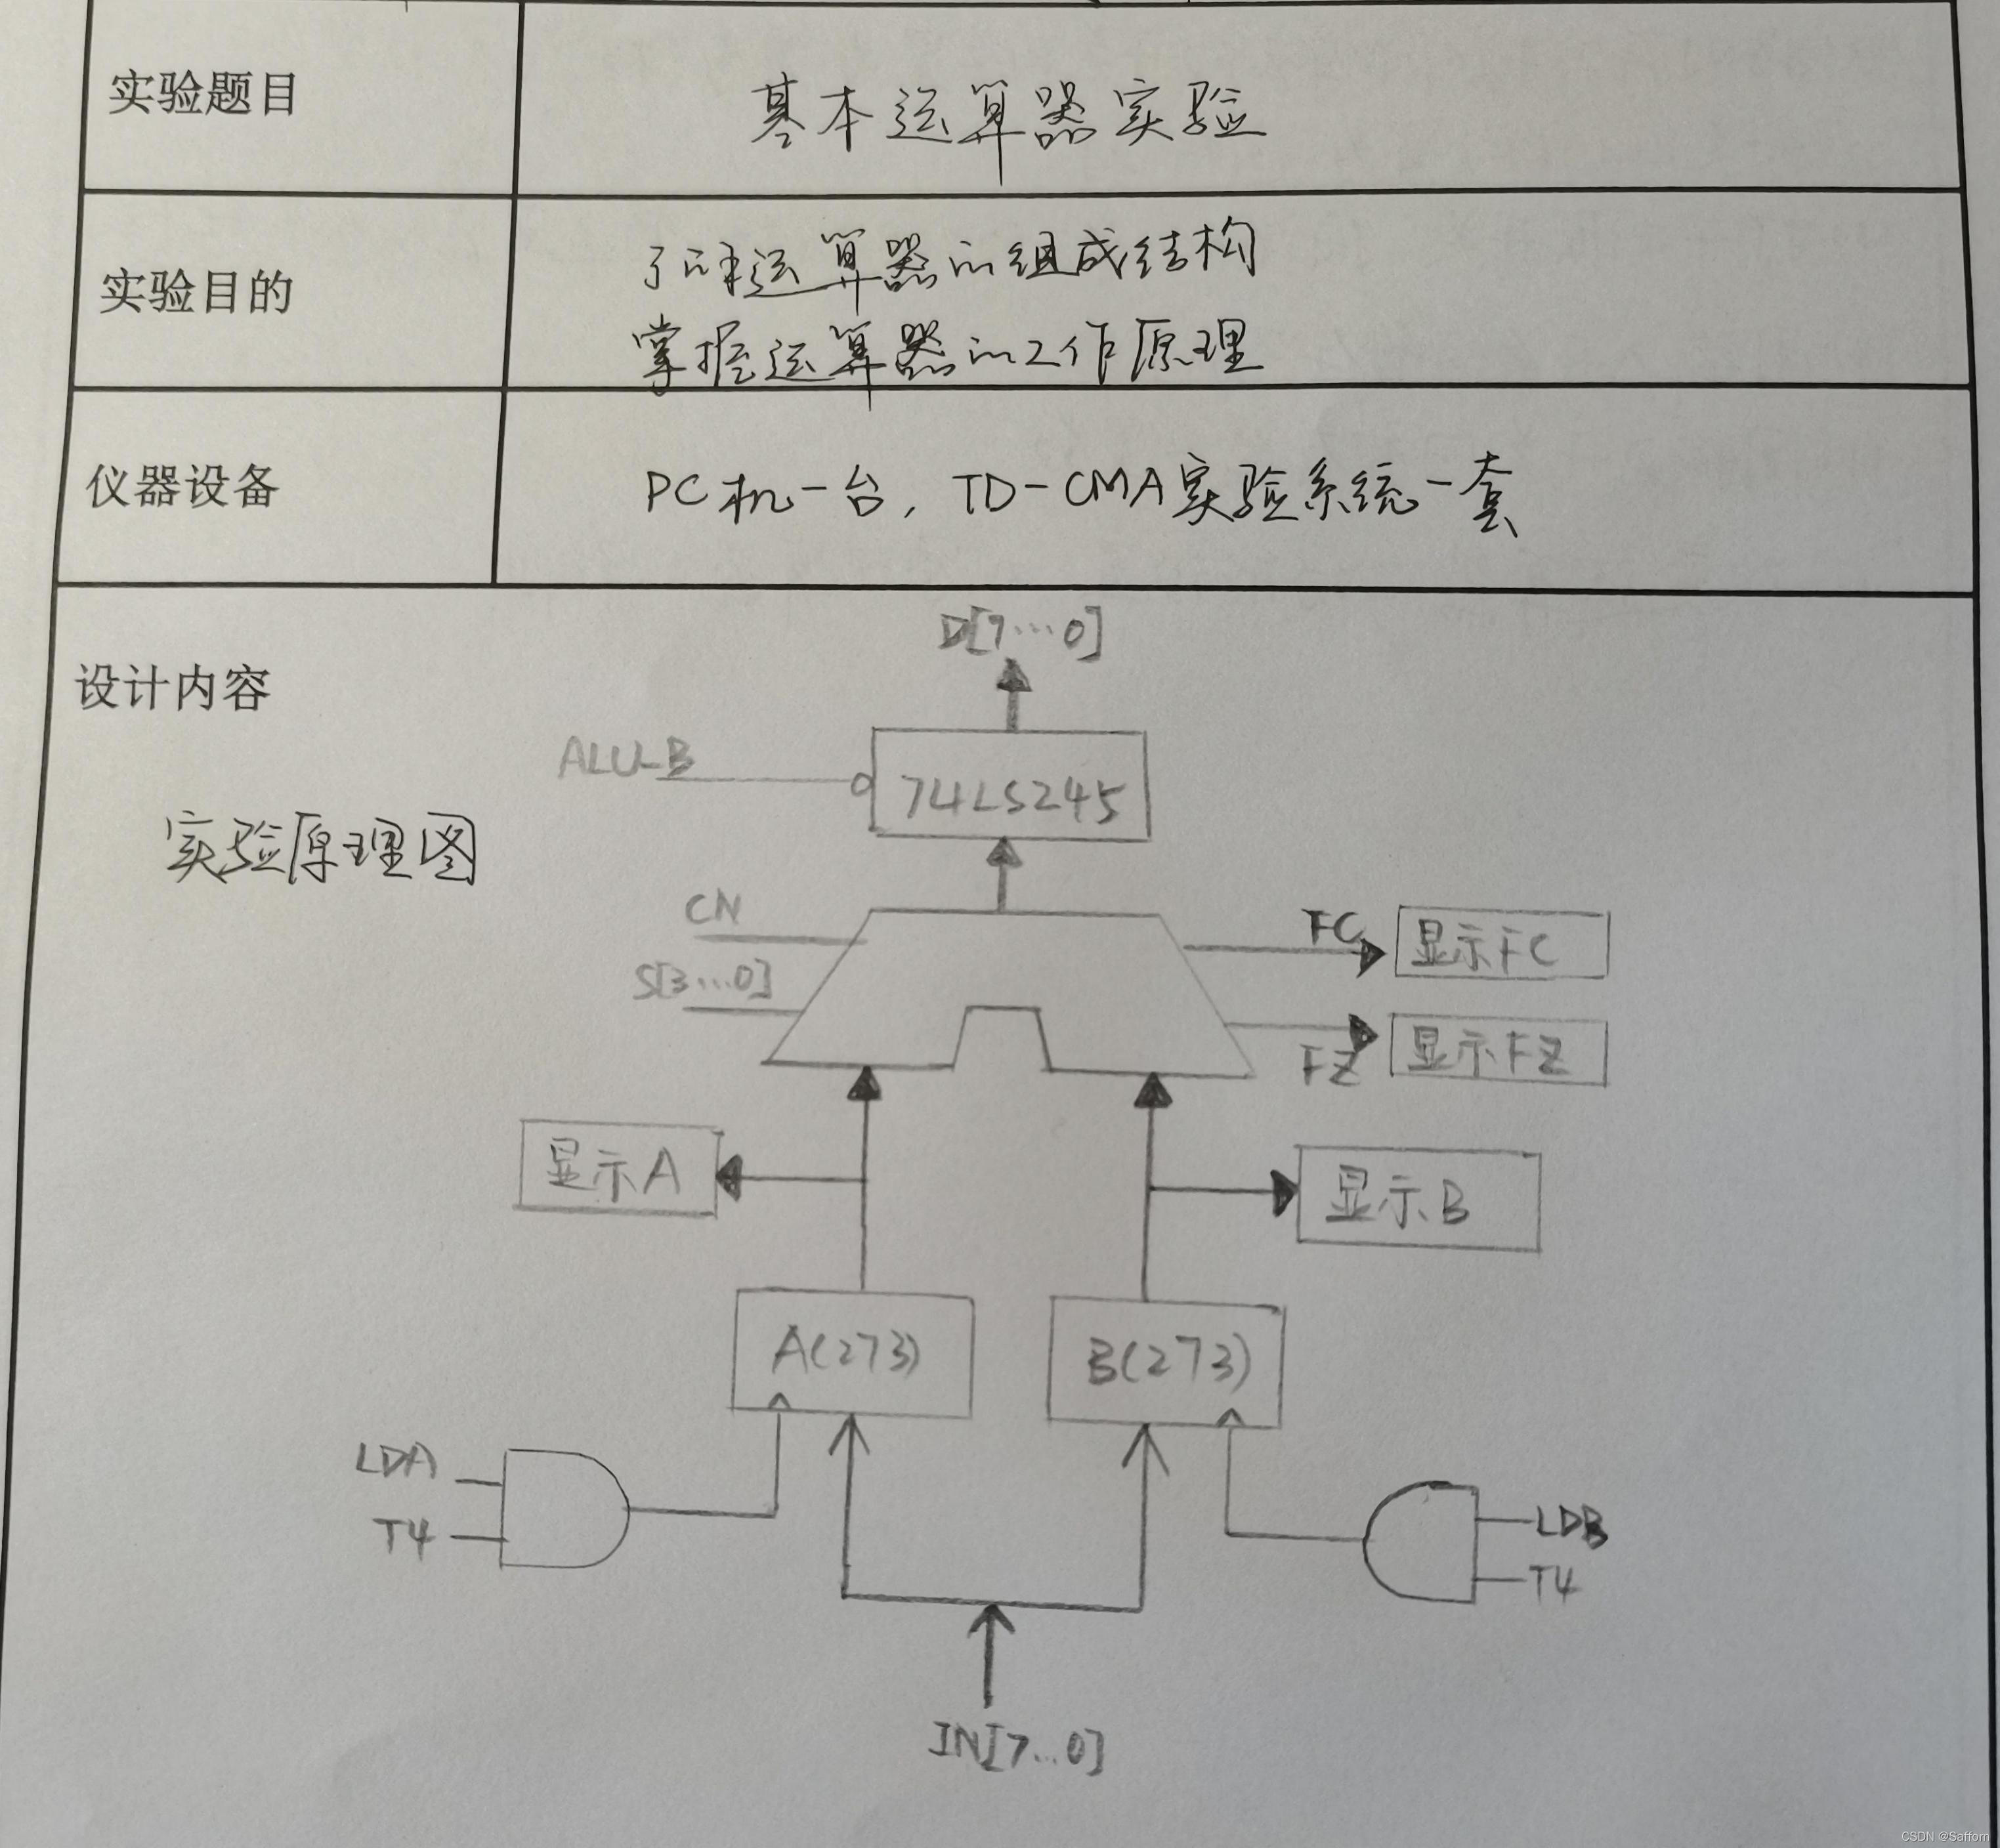 实验题目
基本运算器实验
实验目的
了解运算器的组成结构
掌握运算器的工作原理
仪器设备
PC机一台，TD-CMA实验系统一套
设计内容
实验原理图
D[7…0]
ALU_B
74LS245
CN
S[3…0]
FC
显示FC
FZ
显示FZ
显示A
显示B
A(273)
B(273)
LDA
T4
LDB
T4
IN[7…0]
CSDN @Safforn